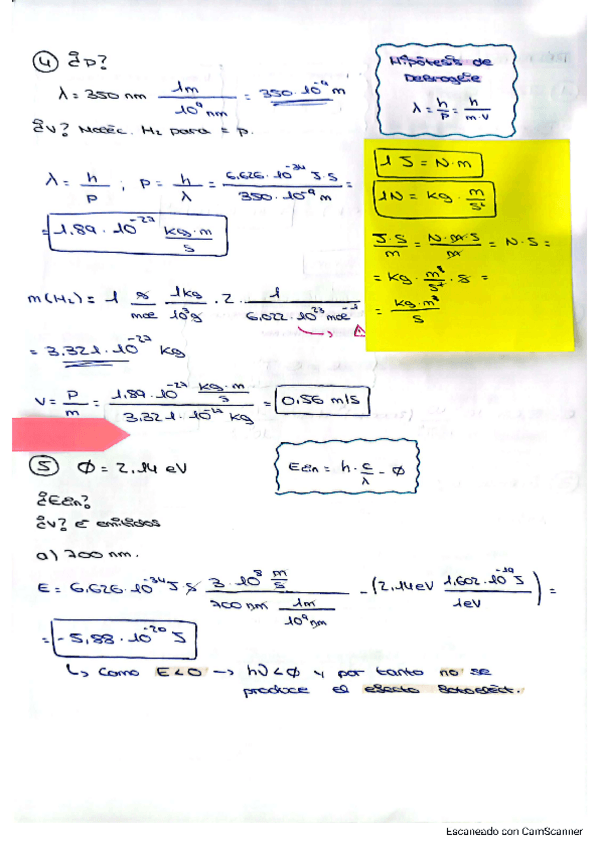 ④ ¿p?
λ = 350 nm 1m / 10⁹ nm = 350·10⁻⁹ m
¿v? Moléc. H₂ para = p.
Hipótesis de
DeBroglie
λ = h/p = h/m·v
λ = h/p ; p = h/λ = 6,626·10⁻³⁴ J·S / 350·10⁻⁹ m =
= 1.89·10⁻²⁷ kg·m/s
1 J = N·m
1N = kg · m/s²
J·S/m = N·m·S/m = N·S =
= kg · m/s² · s =
= kg·m/s
m(H₂) = 1 g/mol 1kg/10³g · 2 · 1 / 6,022·10²³ mol⁻¹
= 3,321·10⁻²⁷ kg
v = p/m = 1,89·10⁻²⁷ kg·m/s / 3,321·10⁻²⁷ kg = 0,56 m/s
⑤ Φ = 2,14 eV
Ecin = h · c/λ - Φ
¿Ecin?
¿v? e⁻ emitidos
a) 700 nm.
E = 6,626·10⁻³⁴ J s 3·10⁸ m/s / 700 nm 1m/10⁹ nm - (2,14 eV 1,602·10⁻¹⁹ J / 1eV) =
= -5,88·10⁻²⁰ J
↳ Como E<0 → hν<Φ y por tanto no se
produce el efecto fotoeléct.
Escaneado con CamScanner